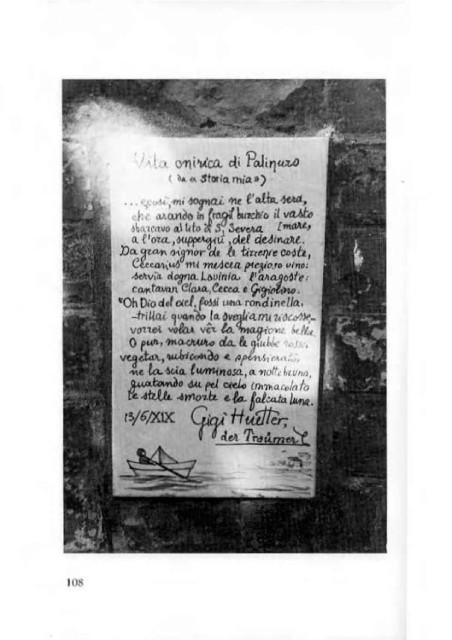 Vita onirica di Palinuro
( da « Storia mia » )
... ecosì, mi sognai ne l'alta sera,
che arando in fragil burchio il vasto
[mare,
sbarcavo al lito di S. Severa
a l'ora, suppergiù, del desinare.
Da gran signor de le tirrene coste,
mi mescea prezioso vino;
servia dogna Lavinia l'aragoste;
cantavan Clara, Cecca e
"Oh Dio del ciel, fossi una rondinella,
-trillai quando la sveglia mi riscosse-
vorrei volar vêr la magione bella
O pur, macruro da le giubbe rosse,
vegetar, rubicondo e spensierato,
ne la scia luminosa, a notte bruna,
guatando su pel cielo immacolato
le stelle smorte e la falcata luna.
13/6/XIX
Gigi Huetter,
der Traümer
108